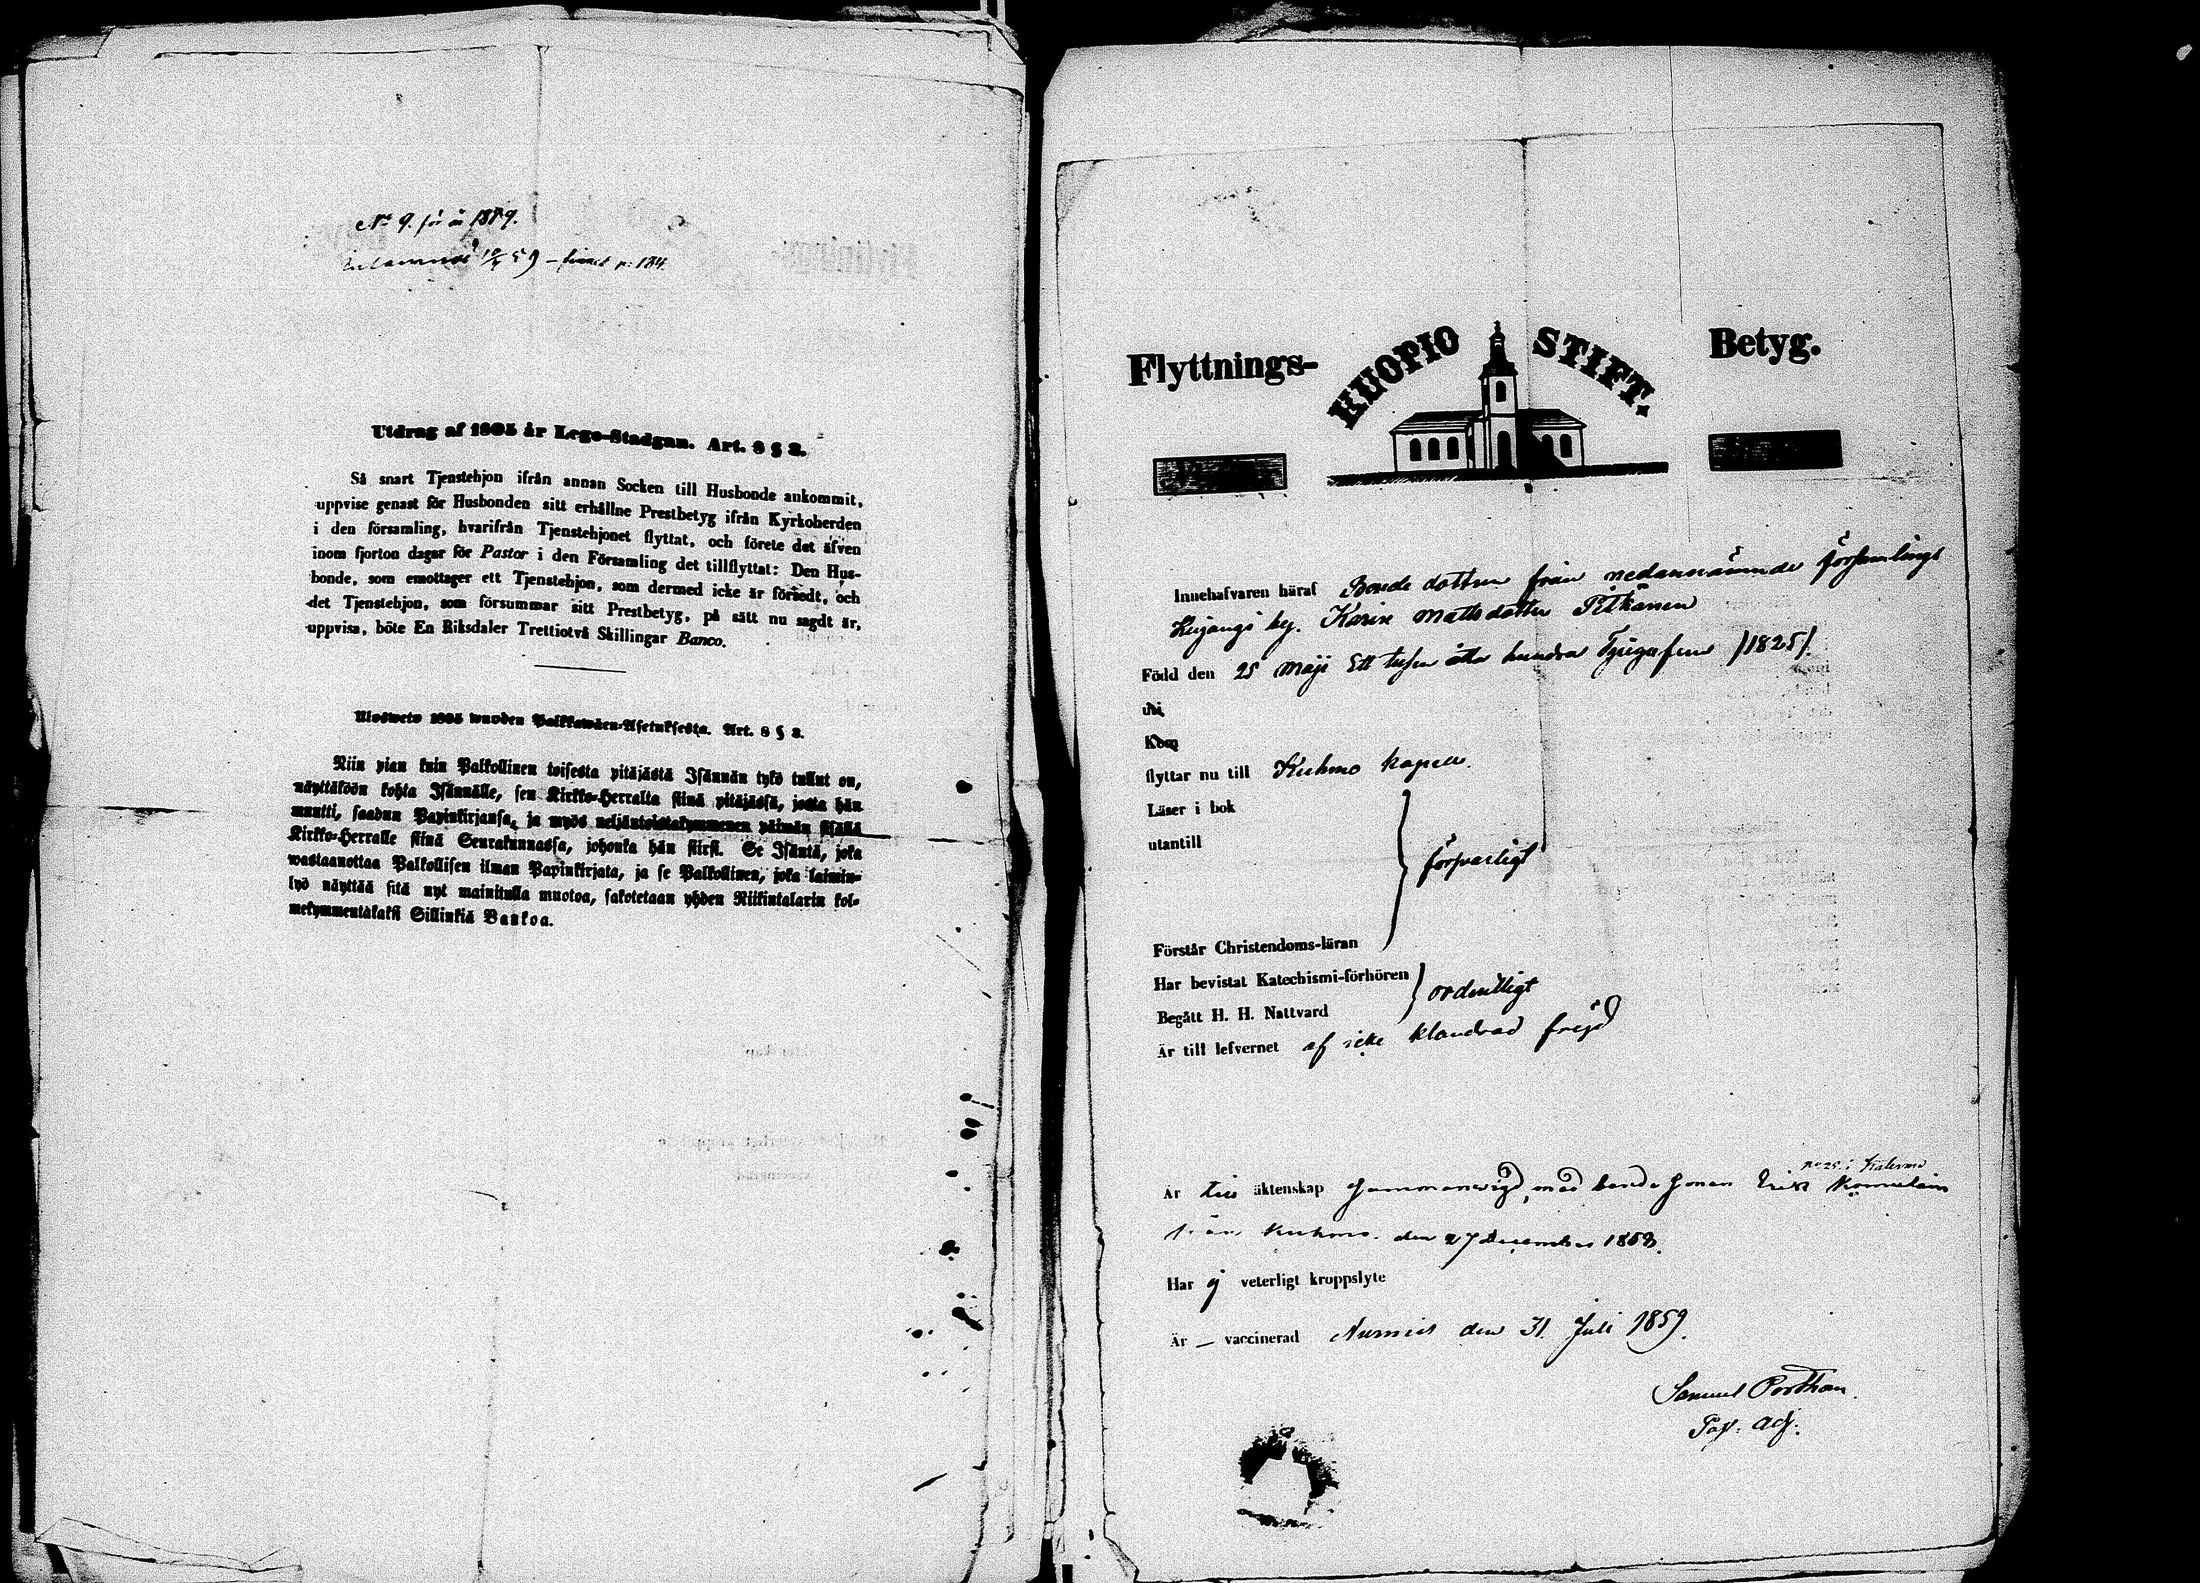 No 9. för år 1859.
59 – p: 184.
Utdrag af 1805 år Lego-Stadgan. Art. 8 § 2.
Så snart Tjenstehjon ifrån annan Socken till Husbonde ankommit,
uppvise genast för Husbonden sitt erhållne Prestbetyg ifrån Kyrkoherden
i den församling, hvarifrån Tjenstehjonet flyttat, och förete det äfven
inom fjorton dagar för Pastor i den Församling det tillflyttat: Den Hus-
bonde, som emottager ett Tjenstehjon, som dermed icke är försedt, och
det Tjenstehjon, som försummar sitt Prestbetyg, på sätt nu sagdt är,
uppvisa, böte En Riksdaler Trettiotvå Skillingar Banco.
Ulosweto 1805 wuoden Palkkawäen-Asetuksesta. Art. 8 § 2.
Niin pian kuin Palkollinen toisesta pitäjästä Isännän tykö tullut on,
näyttäköön kohta Isännälle, sen Kirkko-Herralta siinä pitäjässä, josta hän
muutti, saadun Papinkirjansa, ja myös neljäntoistakymmenen päiwän sisällä
Kirkko-Herralle siinä Seurakunnassa, johonka hän siirsi. Se Isäntä, joka
wastaanottaa Palkollisen ilman Papinkirjata, ja se Palkollinen, joka laimin-
lyö näyttää sitä nyt mainitulla muotoa, sakotetaan yhden Riikintalarin kol-
mekymmentäkaksi Sillinkiä Bankoa.
Flyttnings- KUOPIO STIFT. Betyg.
Innehafvaren häraf Bondedottren från nedannämnde församlings
by. Karin Mattsdotter Pitkänen
Född den 25 Maji Ett tusen åtta hundra Tjugufem /1825/.
uti
Kom
flyttar nu till Kuhmo kapell.
Läser i bok
utantill
försvarligt
Förstår Christendoms-läran
Har bevistat Katechismi-förhören
ordentligt
Begått H. H. Nattvard
Är till lefvernet af icke klandrad frejd
No 25 i
Är till äktenskap sammanvigd, med bondesonen Erik
från Kuhmo. den 27 December 1858.
Har ej veterligt kroppslyte
Är – vaccinerad Nurmis den 31. Juli 1859.
Samuel Porthan.
Past. adj.